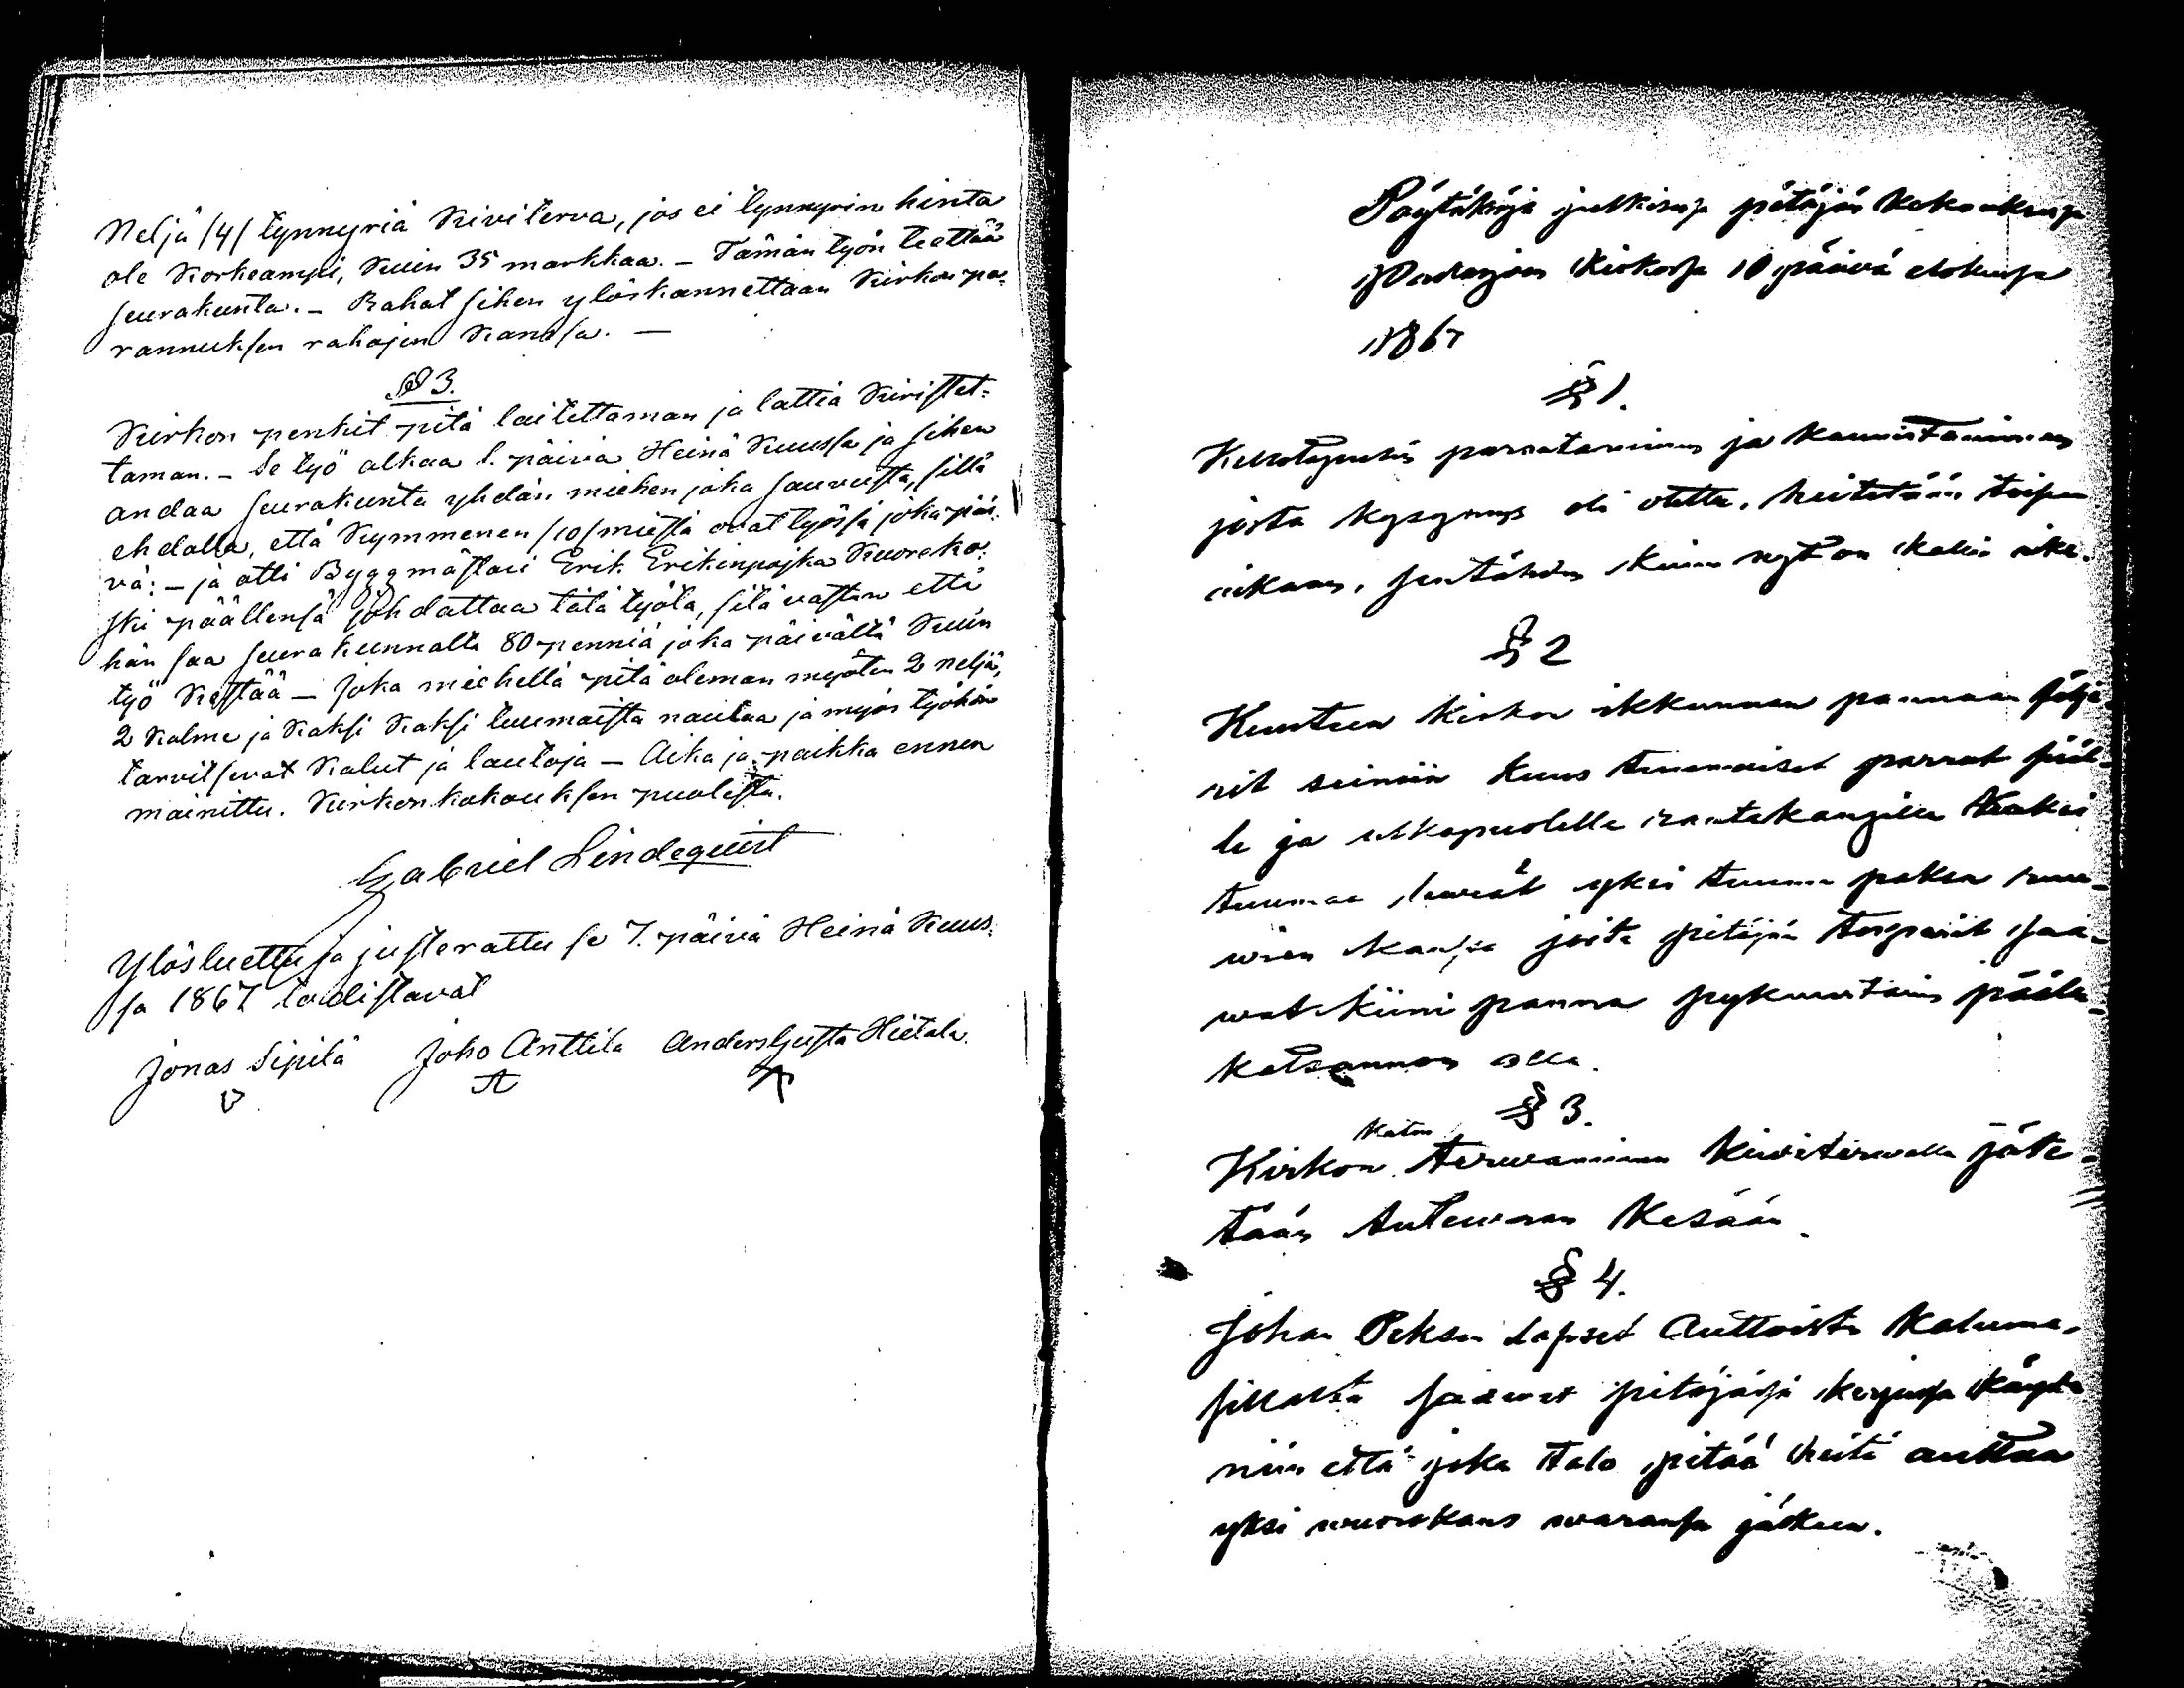 Neljä /4/ tynnyriä Kiviterva, jos ei tynnyrin hinta
ole Korkeampi, Kuin 35 markkaa. – Tämän työn teettää
seurakunta. – Rahat siihen ylöskannettaan Kirkon pa-
rannuksen rahojen Kanssa. –
§ 3.
Kirkon penkit pitä laitettaman ja lattia Kiristet-
taman. – Se työ alkaa 1. päivä Heinä Kuussa ja sihen
andaa seurakunta yhdän miehen joka savusta, sillä
ehdolla, että Kymmenen /10/ miestä ovat työssä joka päi-
vä: – ja otti Byggmästari Erik Erikinpojka Kuoreko-
ski päällensä johdattaa tätä työtä, sitä vastan että
hän saa seurakunnalta 80 penniä joka päivältä Kuin
työ Kestää – Joka miehellä pitä oleman myötän 2 neljä,
2 Kolme ja Kaksi Kaksi tuumaista naulaa ja myös työhön
tarvitsevat Kalut ja lautoja – Aika ja paikka ennen
mainittu. Kirkonkokouksen puolesta.
Gabriel Lindequist
Ylösluettu ja justerattu se 7. päivä Heinä Kuus-
sa 1867 todistavat
Jonas Sipilä Joho Anttila Anders Justa Hietala
Pöytäkirja julkisessa pitäjän kokouksessa
Padasjoen Kirkossa 10 päivä elokuussa
1867
§ 1.
Kellotapulin parantaminen ja kaunistaminen
josta kysymys oli otettu, heitetään toiseen
aikaan, sentähden kuin nyt on kallis aika.
§ 2
Kuuteen kirkon ikkunaan pannaan
seinään kuus tuumaiset parrut
le ja ulkopuolelle rautakangilla kaksi
tuumaa leveät yksi tuuma paksu ruu-
wien kanssa joita pitäjän torparit saa-
wat kiini panna päälle-
katsannon alla.
§ 3.
Katon
Kirkon terwaaminen kiwiterwalla jäte-
tään tulewaan kesään.
§ 4.
Johan Peksin lapset Auttoista
saawat pitäjässä kerjussa käydä
niin että joka talo pitää heitä auttaa
yksi wuorokaus waransa jälkeen.